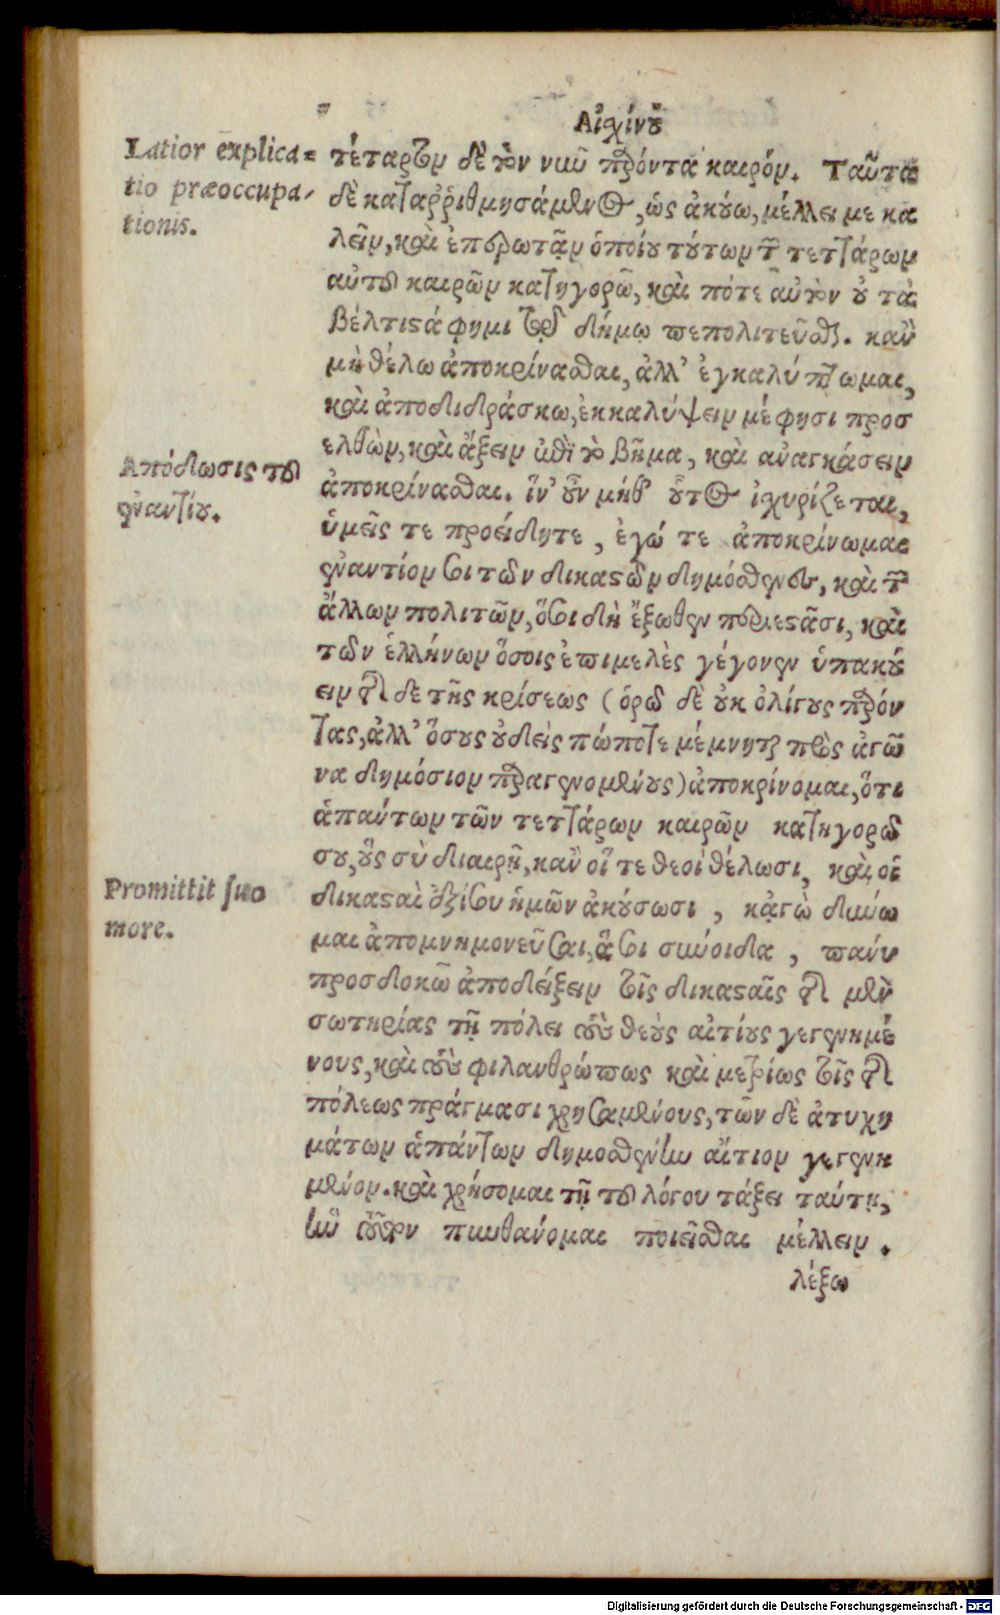 Αἰσχίνου
Latior explica=
tio præoccupa-
tionis.
τέταρτον δὲ τὸν νυνὶ παρόντα καιρόν. Ταῦτα
δὲ καταῤῥιθμησάμενος, ὡς ἀκούω, μέλλει με κα
λεῖν, καὶ ἐπερωτᾷν ὁποίου τούτων τῶν τεττάρων
αὐτοῦ καιρῶν κατηγορῶ, καὶ πότε αὐτὸν οὐ τὰ
βέλτιστά φημι τῷ δήμῳ πεπολιτεῦσθαι. κἂν
μὴ θέλω ἀποκρίνασθαι, ἀλλ' ἐγκαλύπτωμαι,
καὶ ἀποδιδράσκω, ἐκκαλύψειν μέ φησι προσ
ελθὼν, καὶ ἄξειν ἐπὶ τὸ βῆμα, καὶ ἀναγκάσειν
Ἀπόδωσις τοῦ
ἐναντίου.
ἀποκρίνασθαι. ἵν' οὖν μήθ' οὗτος ἰσχυρίζεται,
ὑμεῖς τε προείδητε, ἐγώ τε ἀποκρίνωμαι
ἐναντίον σοι τῶν δικαστῶν δημόσθενες, καὶ τῶν
ἄλλων πολιτῶν, ὅσοι δὴ ἔξωθεν περιεστᾶσι, καὶ
τῶν ἑλλήνων ὅσοις ἐπιμελὲς γέγονεν ὑπακού
ειν τῆσδε τῆς κρίσεως (ὁρῶ δὲ οὐκ ὀλίγους παρόν
τας, ἀλλ' ὅσους οὐδεὶς πώποτε μέμνηται πρὸς ἀγῶ
να δημόσιον παραγενομένους) ἀποκρίνομαι, ὅτι
ἁπάντων τῶν τεττάρων καιρῶν κατηγορῶ
σου, οὓς σὺ διαιρῇ, κἂν οἵ τε θεοὶ θέλωσι, καὶ οἱ
Promittit suo
more.
δικασταὶ ἐξίσου ἡμῶν ἀκούσωσι, κᾀγὼ δύνω
μαι ἀπομνημονεῦσαι, ἅ σοι σύνοιδα, πάνυ
προσδοκῶ ἀποδείξειν τοῖς δικασταῖς τῆς μὲν
σωτηρίας τῇ πόλει τοὺς θεοὺς αἰτίους γεγενημέ
νους, καὶ τοὺς φιλανθρώπως καὶ μετρίως τοῖς τῆς
πόλεως πράγμασι χρησαμένους, τῶν δὲ ἀτυχη
μάτων ἁπάντων δημοσθένην αἴτιον γεγενη
μένον. καὶ χρήσομαι τῇ τοῦ λόγου τάξει ταύτῃ,
ἣν τοῦτον πυνθάνομαι ποιεῖσθαι μέλλειν.
λέξω
Digitalisierung gefördert durch die Deutsche Forschungsgemeinschaft - DFG